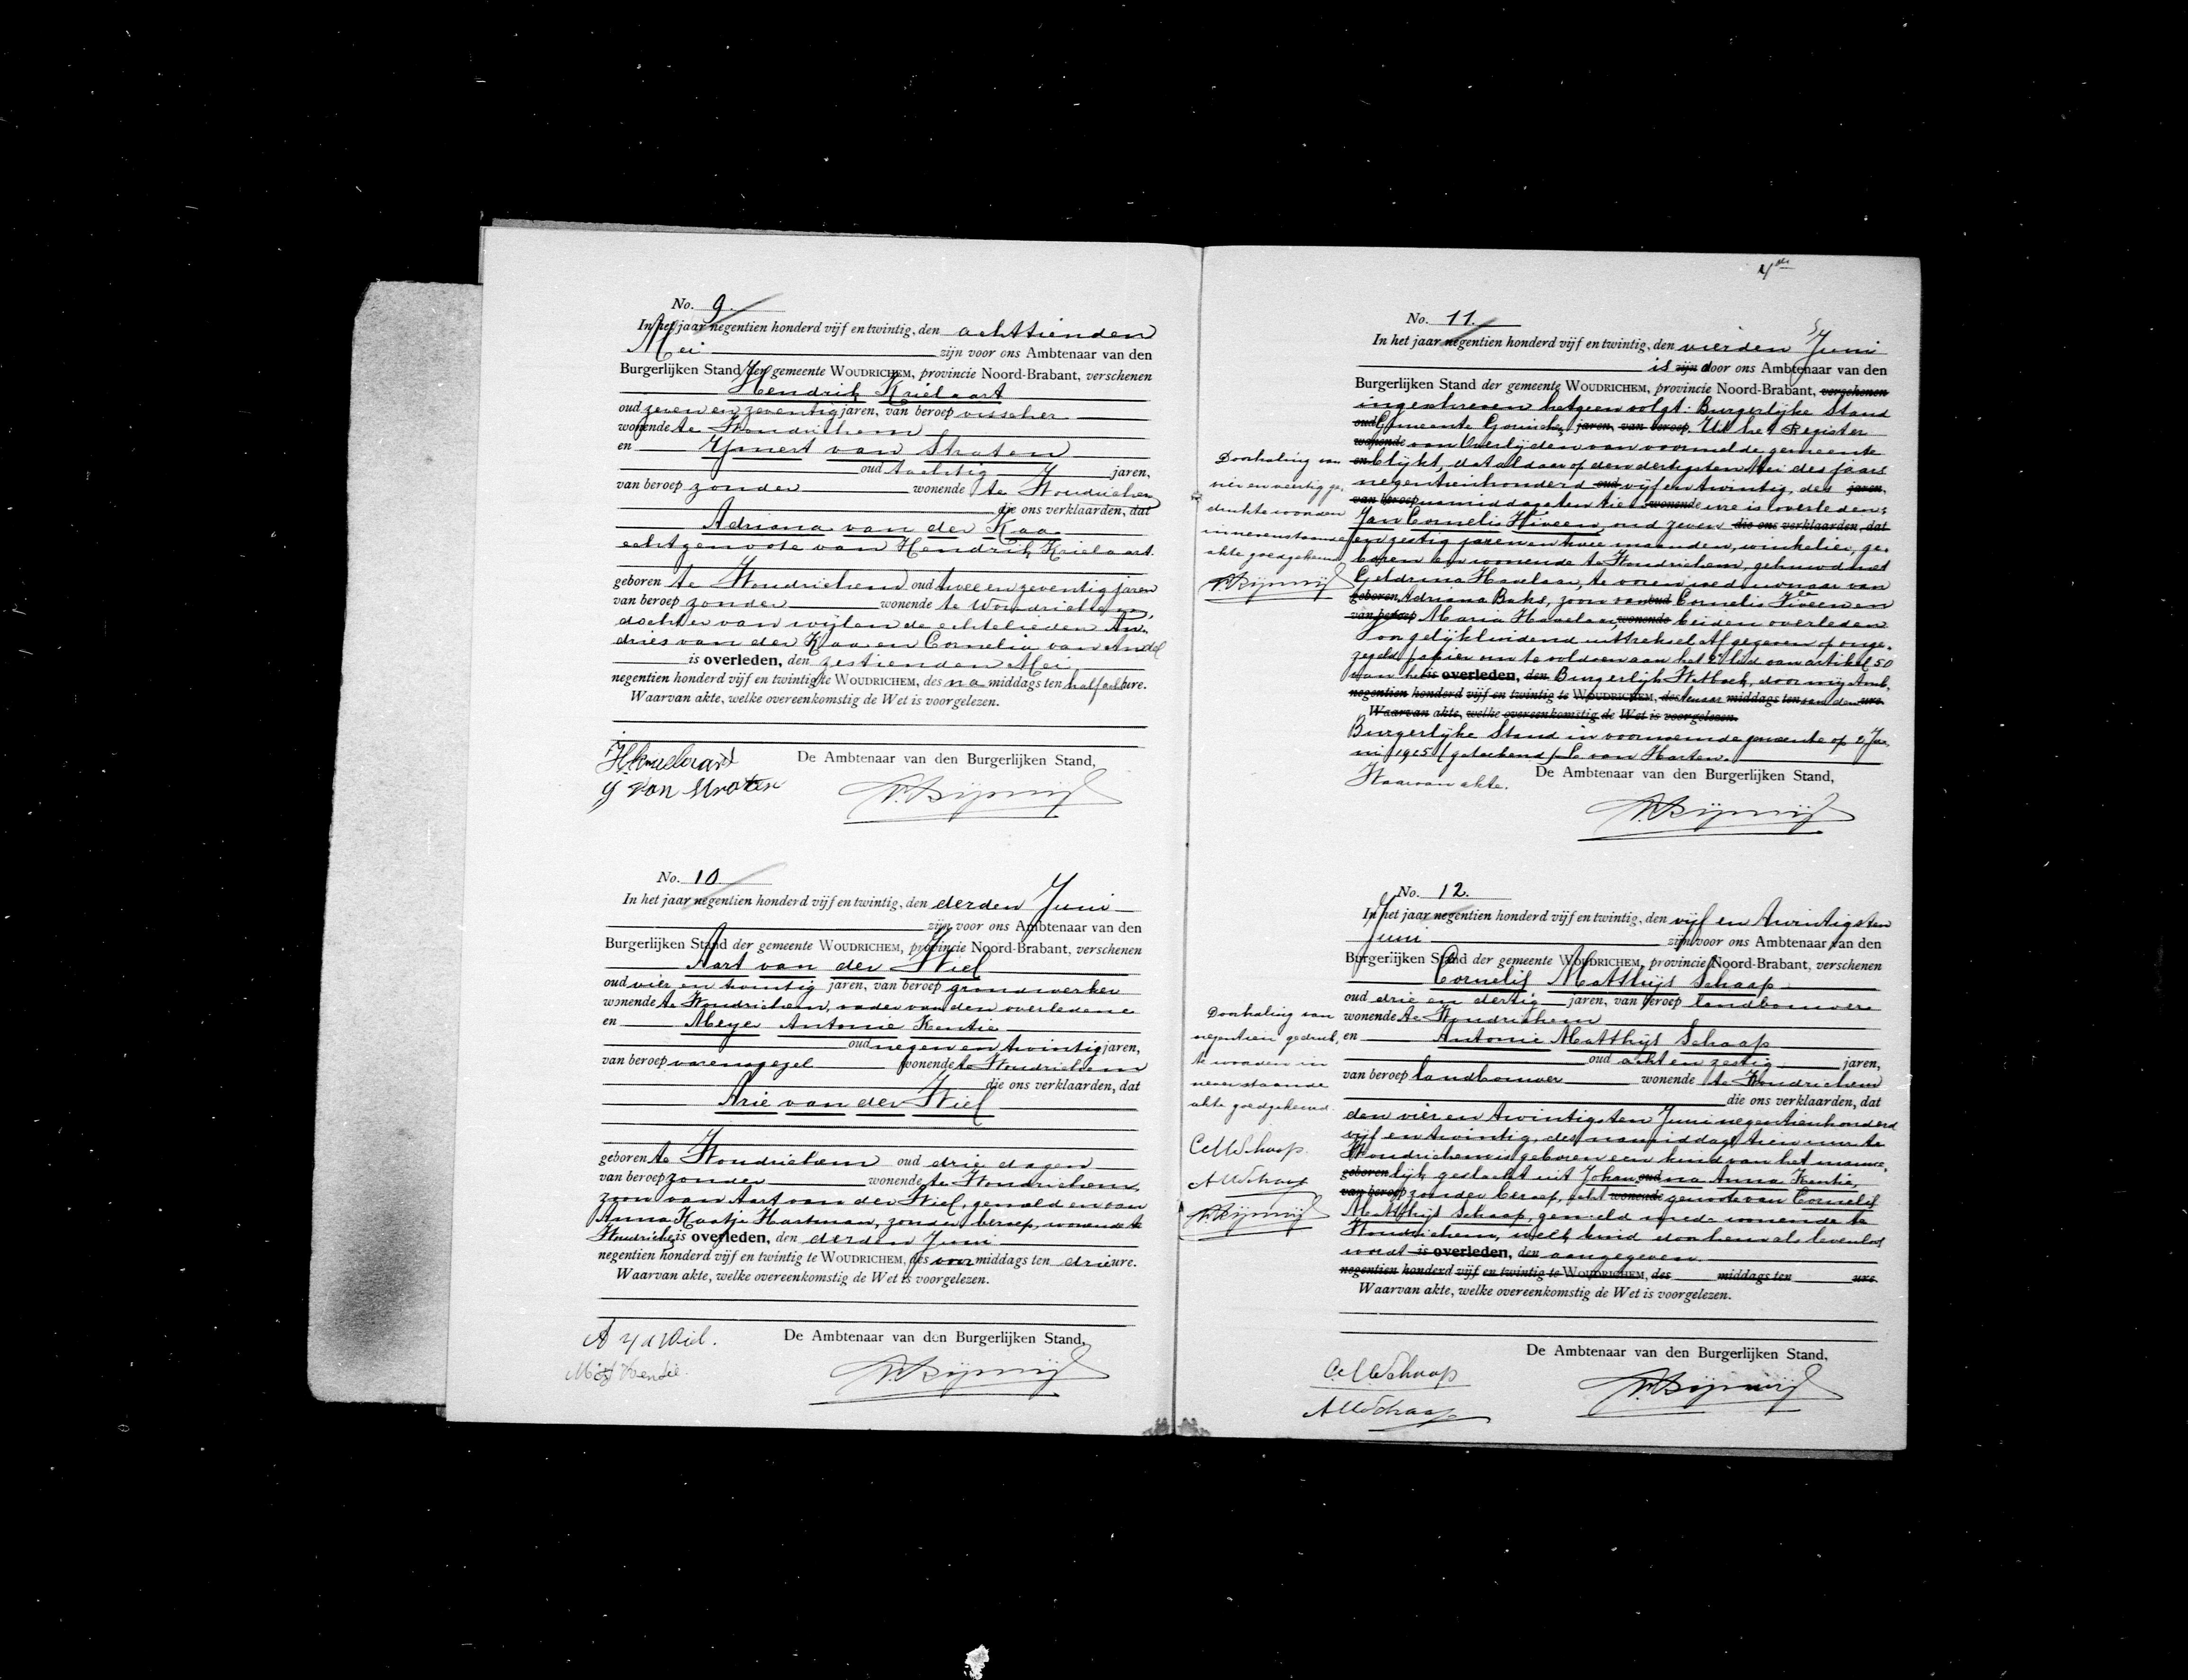 No. 9
In het jaar negentien honderd vijf en twintig, den achttienden
Mei zijn voor ons Ambtenaar van den
Burgerlijken Stand der gemeente WOUDRICHEM, provincie Noord-Brabant, verschenen
Hendrik Krielaart
oud zeven en zeventig jaren, van beroep visscher
wonende te Woudrichem
en IJmert van Straten
oud tachtig jaren,
van beroep zonder wonende te Woudrichem
die ons verklaarden, dat
Adriana van der Kaa
echtgenoote van Hendrik Krielaart.
geboren te Woudrichem oud twee en zeventig jaren
van beroep zonder wonende te Woudrichem,
dochter van wijlen de echtelieden An-
dries van der Kaa en Cornelia van Andel
is overleden, den zestienden Mei
negentien honderd vijf en twintig te WOUDRICHEM, des na middags ten half acht ure.
Waarvan akte, welke overeenkomstig de Wet is voorgelezen.
De Ambtenaar van den Burgerlijken Stand,
H. Krielaart
IJ van Straten
No. 10
In het jaar negentien honderd vijf en twintig, den derden Juni
zijn voor ons Ambtenaar van den
Burgerlijken Stand der gemeente WOUDRICHEM, provincie Noord-Brabant, verschenen
Aart van der Wiel
oud vier en twintig jaren, van beroep grondwerker
wonende te Woudrichem, vader van den overledene
en Meye Antonie Kentie
oud negen en twintig jaren,
van beroep wonende te Woudrichem
die ons verklaarden, dat
Arie van der Wiel
geboren te Woudrichem oud drie dagen
van beroep zonder wonende te Woudrichem,
zoon van Aart van der Wiel, gemeld en van
Anna Kaatje Hartman, zonder beroep, wonende te
Woudrichem is overleden, den derden Juni
negentien honderd vijf en twintig te WOUDRICHEM, des voor middags ten drie ure.
Waarvan akte, welke overeenkomstig de Wet is voorgelezen.
De Ambtenaar van den Burgerlijken Stand,
A v d Wiel.
4de
No. 11.
In het jaar negentien honderd vijf en twintig, den vierden Juni
is zijn door ons Ambtenaar van den
Burgerlijken Stand der gemeente WOUDRICHEM, provincie Noord-Brabant, verschenen
ingeschreven hetgeen volgt: Burgerlijke Stand
oud Gemeente Gorinchem jaren, van beroep. Uit het Register
wonende van Overlijden van voormelde gemeente
en blijkt, dat aldaar op den dertigsten Mei des jaars
negentienhonderd oud vijf en twintig, des jaren,
van beroep namiddags ten tien wonende ure is overleden:
Jan Cornelis Viveen, oud zeven die ons verklaarden, dat
en zestig jaren en twee maanden, winkelier, ge-
boren en wonende te Woudrichem, gehuwd met
Geldrina Havelaar, te voren weduwnaar van
geboren Adriana Baks, zoon van oud Cornelis Viveen en
van beroep Maria Havelaar, wonende beiden overleden.
Voor gelijkluidend uittreksel Afgegeven op onge-
zegeld papier om te voldoen aan het 2e lid van artikel 50
van het is overleden, den Burgerlijk Wetboek, door mij Amb-
negentien honderd vijf en twintig te WOUDRICHEM, des tenaar middags ten van den ure.
Waarvan akte, welke overeenkomstig de Wet is voorgelezen.
Burgerlijke Stand in voornoemde gemeente op 2 Ju-
ni 1925 (geteekend) C. van Harten.
Waarvan akte.
De Ambtenaar van den Burgerlijken Stand,
Doorhaling van
vier en veertig ge-
drukte woorden
in nevenstaande
akte goedgekeurd
No. 12.
In het jaar negentien honderd vijf en twintig, den vijf en twintigsten
Juni zijn voor ons Ambtenaar van den
Burgerlijken Stand der gemeente WOUDRICHEM, provincie Noord-Brabant, verschenen
Cornelis Matthijs Schaap
oud drie en dertig jaren, van beroep landbouwer
wonende te Woudrichem
en Antonie Matthijs Schaap
oud acht en zestig jaren,
van beroep landbouwer wonende te Woudrichem
die ons verklaarden, dat
den vier en twintigsten Juni negentienhonderd
vijf en twintig, des namiddags tien uur te
Woudrichem is geboren een kind van het manne-
geboren lijk geslacht uit Johan oud na Anna Kentie,
van beroep zonder beroep, echt wonende genoote van Cornelis
Matthijs Schaap, gemeld mede wonende te
Woudrichem, welk kind door hem als levenloos
wordt is overleden, den aangegeven
negentien honderd vijf en twintig te WOUDRICHEM, des middags ten ure.
Waarvan akte, welke overeenkomstig de Wet is voorgelezen.
De Ambtenaar van den Burgerlijken Stand,
C.M. Schaap
A M Schaap
Doorhaling van
negentien gedruk-
te woorden in
nevenstaande
akte goedgekeurd.
C M Schaap
A M Schaap